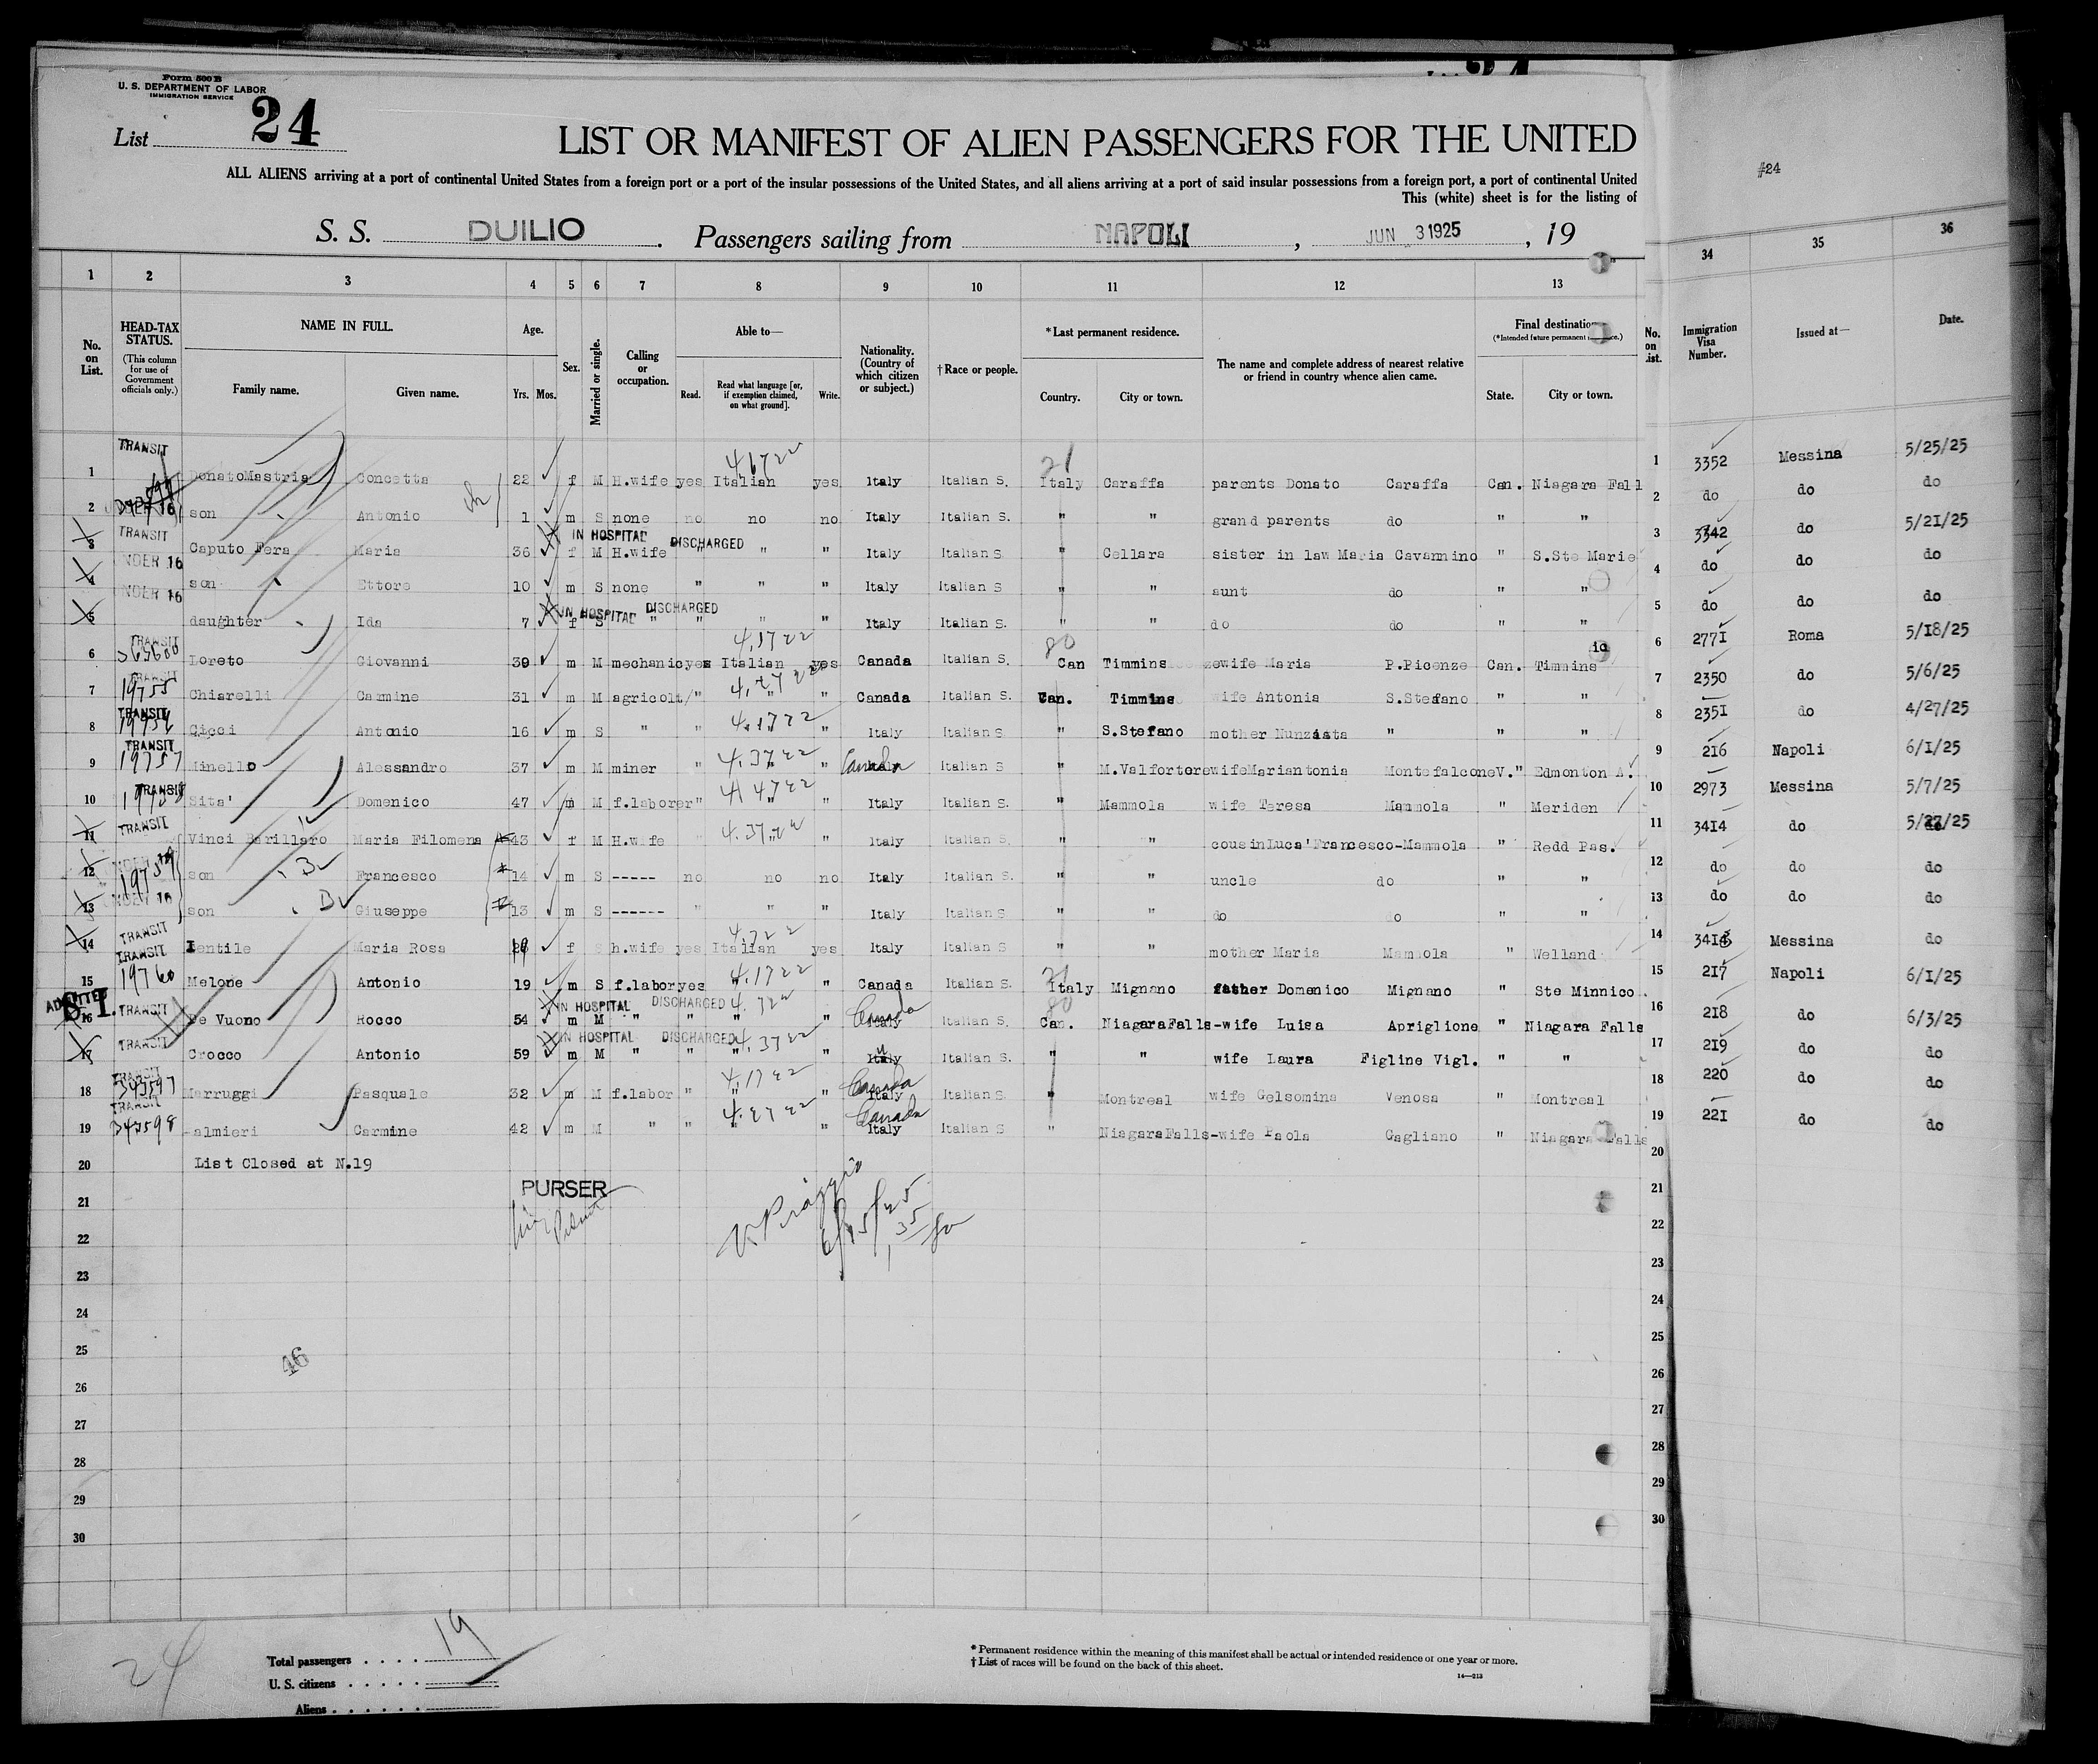 Form 500 B
U. S. DEPARTMENT OF LABOR
IMMIGRATION SERVICE
List 24
LIST OR MANIFEST OF ALIEN PASSENGERS FOR THE UNITED
ALL ALIENS arriving at a port of continental United States from a foreign port or a port of the insular possessions of the United States, and all aliens arriving at a port of said insular possessions from a foreign port, a port of continental United
This (white) sheet is for the listing of
S. S. DUILIO. Passengers sailing from NAPOLI, JUN 3 1925, 19
#24
1 2 3 4 5 6 7 8 9 10 11 12 13 34 35 36
No. on List.
HEAD-TAX STATUS.
(This column for use of Government officials only.)
NAME IN FULL.
Family name. Given name.
Age.
Yrs. Mos.
Sex.
Married or single.
Calling or occupation.
Able to—
Read. Read what language [or, if exemption claimed, on what ground]. Write.
Nationality. (Country of which citizen or subject.)
†Race or people.
*Last permanent residence.
Country. City or town.
The name and complete address of nearest relative or friend in country whence alien came.
Final destination
(*Intended future permanent
State. City or town.
No. on List.
Immigration Visa Number.
Issued at—
Date.
1 TRANSIT DonatoMastria Concetta 22 f M H.wife yes Italian yes Italy Italian S. Italy Caraffa parents Donato Caraffa Can. Niagara Fall 1 3352 Messina 5/25/25
2 son Antonio 1 m S none no no no Italy Italian S. " " grand parents do " " 2 do do do
3 TRANSIT Caputo Fera Maria 36 IN HOSPITAL DISCHARGED f M H.wife " " " Italy Italian S " Cellara sister in law Maria Cavannino " S.Ste Marie 3 3342 do 5/21/25
4 UNDER 16 son Ettore 10 m S none " " " Italy Italian S " " aunt do " " 4 do do do
5 UNDER 16 daughter Ida 7 IN HOSPITAL DISCHARGED f S " " " " Italy Italian S. " " do do " " 5 do do do
6 TRANSIT 363600 Loreto Giovanni 39 m M mechanic yes Italian yes Canada Italian S. Can Timmins wife Maria P.Picenze Can. Timmins 6 2771 Roma 5/18/25
7 TRANSIT 19755 Chiarelli Carmine 31 m M agricolt/ " " " Canada Italian S. Can. Timmins wife Antonia S.Stefano " " 7 2350 do 5/6/25
8 TRANSIT 19756 Cicci Antonio 16 m S " " " " Italy Italian S " S.Stefano mother Nunziata " " " 8 2351 do 4/27/25
9 TRANSIT 19757 Minello Alessandro 37 m M miner " " " Canada Italian S " M.Valfortore wifeMariantonia MontefalconeV. " Edmonton A. 9 216 Napoli 6/1/25
10 TRANSIT 19758 Sita' Domenico 47 m M f.laborer " " " Italy Italian S. " Mammola wife Teresa Mammola " Meriden 10 2973 Messina 5/7/25
11 TRANSIT Vinci Barillaro Maria Filomena 43 f M H.wife " " " Italy Italian S. " " cousinLuca'Francesco-Mammola " Redd Pas. 11 3414 do 5/27/25
12 19759 son Francesco 14 m S ----- no no no Italy Italian S. " " uncle do " " 12 do do do
13 UNDER 16 son Giuseppe 13 m S ------ " " " Italy Italian S " " do do " " 13 do do do
14 TRANSIT Ientile Maria Rosa f S h.wife yes Italian yes Italy Italian S " " mother Maria Mammola " Welland 14 3413 Messina do
15 TRANSIT 19760 Melone Antonio 19 m S f.labor yes " " Canada Italian S. Italy Mignano father Domenico Mignano " Ste Minnico 15 217 Napoli 6/1/25
ADMITTED S.I.
16 TRANSIT De Vuono Rocco 54 IN HOSPITAL DISCHARGED m M " " " " Italy Canada Italian S. Can. NiagaraFalls-wife Luisa Apriglione " Niagara Falls 16 218 do 6/3/25
17 TRANSIT Crocco Antonio 59 IN HOSPITAL DISCHARGED m M " " " " Italy Italian S. " " wife Laura Figline Vigl. " " 17 219 do do
18 TRANSIT 343597 Marruggi Pasquale 32 m M f.labor " " " Italy Canada Italian S " Montreal wife Gelsomina Venosa " Montreal 18 220 do do
19 TRANSIT 343598 almieri Carmine 42 m M " " " " Italy Canada Italian S " NiagaraFalls-wife Paola Cagliano " Niagara Falls 19 221 do do
20 List Closed at N.19 20
21 PURSER 21
22 22
23 23
24 24
25 46 25
26 26
27 27
28 28
29 29
30 30
24
Total passengers 19
U. S. citizens
Aliens
* Permanent residence within the meaning of this manifest shall be actual or intended residence of one year or more.
† List of races will be found on the back of this sheet.
14—213